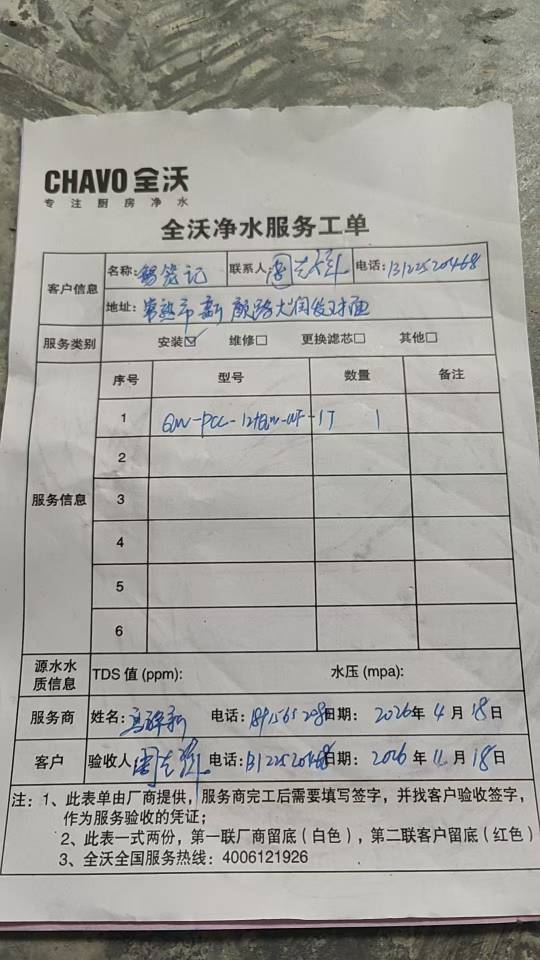 CHAVO 全沃
专注厨房净水
全沃净水服务工单
客户信息
名称: 记 联系人: 周志 电话: 13122520468
地址: 常熟市新颜路大润发对面
服务类别 安装☑ 维修□ 更换滤芯□ 其他□
服务信息
序号 型号 数量 备注
1 QW-PCC- 1
2
3
4
5
6
源水水质信息 TDS 值 (ppm): 水压 (mpa):
服务商 姓名: 电话: 日期: 2026年4月18日
客户 验收人: 周志 电话: 13122520468 日期: 2026年 月18日
注：1、此表单由厂商提供，服务商完工后需要填写签字，并找客户验收签字，
作为服务验收的凭证；
2、此表一式两份，第一联厂商留底（白色），第二联客户留底（红色）
3、全沃全国服务热线：4006121926